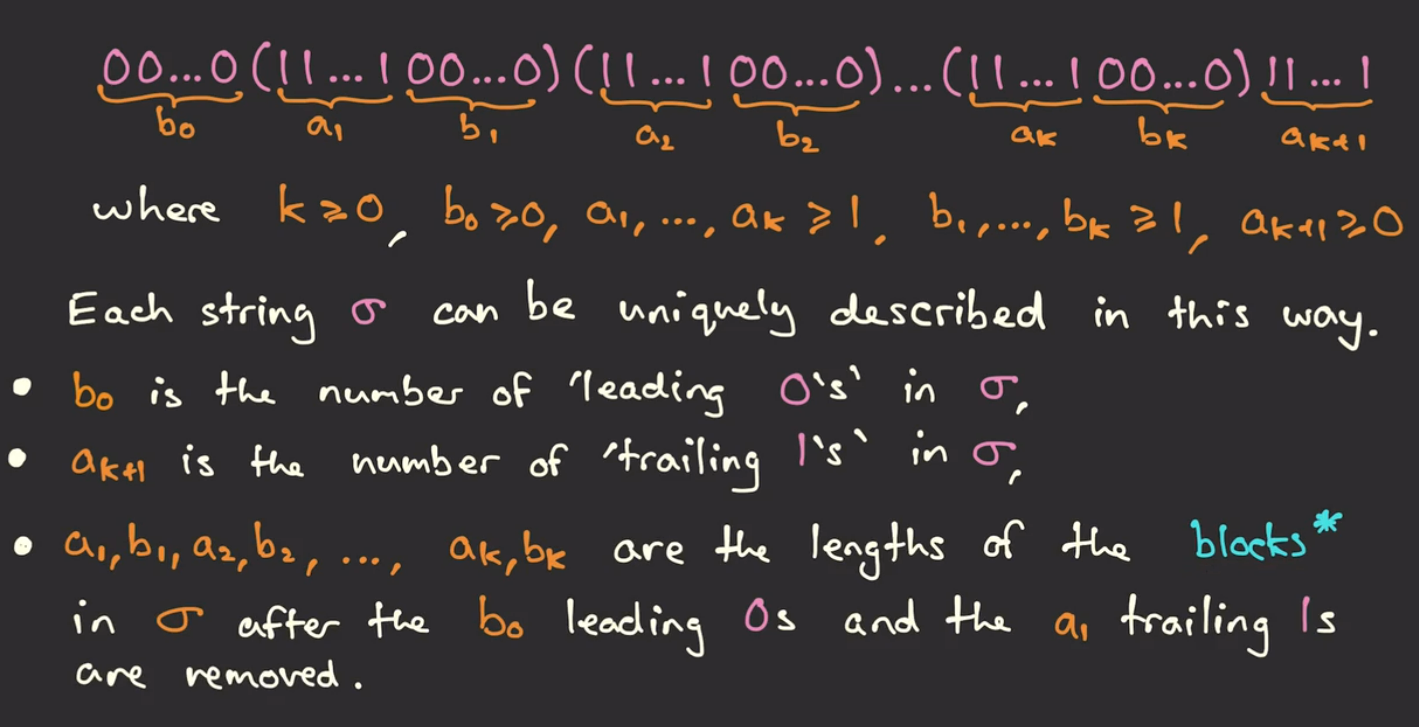 00...0(11...100...0)(11...100...0)...(11...100...0)11...1
b₀ a₁ b₁ a₂ b₂ aₖ bₖ aₖ₊₁
where k⩾0, b₀⩾0, a₁, ..., aₖ⩾1, b₁, ..., bₖ⩾1, aₖ₊₁⩾0
Each string σ can be uniquely described in this way.
• b₀ is the number of 'leading 0's' in σ,
• aₖ₊₁ is the number of 'trailing 1's' in σ,
• a₁,b₁,a₂,b₂, ..., aₖ,bₖ are the lengths of the blocks*
in σ after the b₀ leading 0s and the a₁ trailing 1s
are removed.